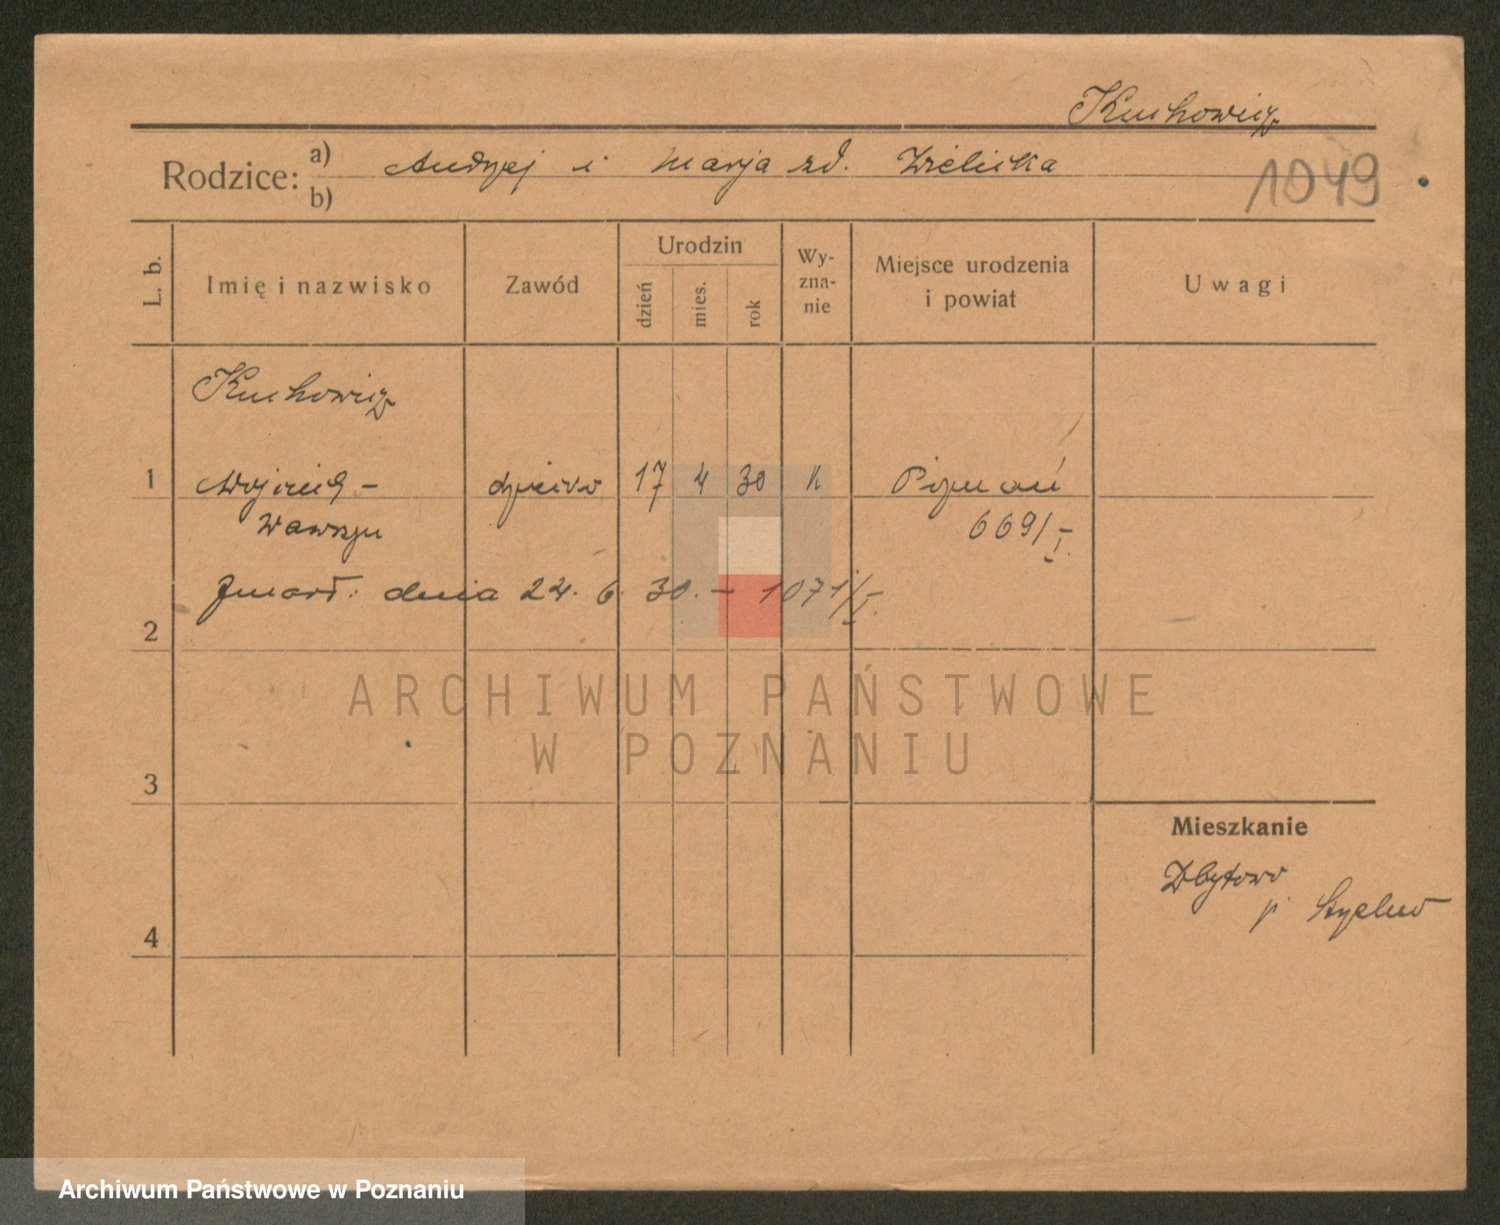 Kuchowicz
Rodzice: a) Andrzej i Marja zd. Zielińska
b)
1049
L. b.
Imię i nazwisko
Zawód
Urodzin
dzień
mies.
rok
Wy-
zna-
nie
Miejsce urodzenia
i powiat
Uwagi
Kuchowicz
1 Wojciech - dziecko 17 4 30 k Poznań
Wawrzyn 669/I.
Zmarł. dnia 24. 6. 30. - 1071/I.
2
ARCHIWUM PAŃSTWOWE
W POZNANIU
3
Mieszkanie
Zbytowo
p.
4
Archiwum Państwowe w Poznaniu